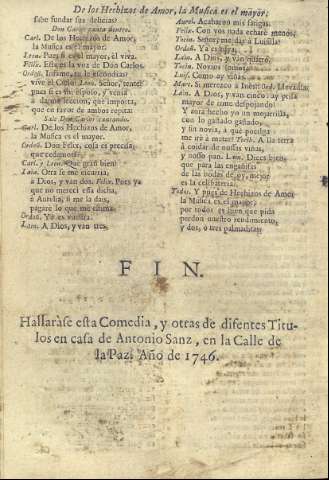 De los Hechizos de Amor, la Musica es el mayor,
sabe fundar sus delicias?
Don Carlos canta dentro.
Carl. De los Hechizos de Amor,
la Musica es el mayor.
Leon. Pues si es el mayor, él viva.
Felix. Esta es la voz de Don Carlos.
Ordoñ. Infame, tu le escondias?
vive el Cielo. Leon. Señor, tente,
pues si es mi esposo, y venia
à darme leccion, que importa,
que en favor de ambos repita:
Sale Don Carlos cantando.
Carl. De los Hechizos de Amor,
la Musica es el mayor.
Ordoñ. Don Felix, cosa es precisa,
que cedamos.
Carl. y Leon. Què gran bien!
Lain. Otra se me encarria,
à Dios, y van dos. Felix. Pues ya
que no mereci essa dicha,
à Aurelia, si me la dais,
pagarè lo que me estima.
Ordoñ. Yo es vuestra.
Lain. A Dios, y van tres.
Aurel. Acabaron mis fatigas.
Felix. Con vos nada echarè menos.
Tecin. Señor, me dàs à Luisilla?
Ordoñ. Ya es tuya.
Lain. A Dios, y van quatro.
Tecin. Novios somos.
Luis. Como ay viñas.
Marc. Si merezco à Inès
Lain. A Dios, y van cinco: ay prisa
mayor de irme despojando!
Y aora hecho yo un mojarrilla,
con lo gastado gastado,
y sin novia, à què posada
me irè à matar? Torib. A la tierra
à cuidar de nuestras viñas,
y nosso pan. Lain. Dices bien,
que para las engañifas
de las bodas de oy, mejor
es la
Todos. Y pues de Hechizos de Amor
la Musica es el mayor;
por todos es bien que pida
perdon nuestro rendimiento,
y dos, ò tres palmaditas.
FIN.
Hallaràse esta Comedia, y otras de difentes Titu-
los en casa de Antonio Sanz, en la Calle de
la Paz. Año de 1746.